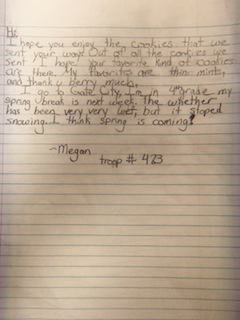 Hi,
I hope you enjoy the cookies that we
sent your way. Out of all the cookies we
sent I hope your favorite kind of cookies
are there. My favorites are thin mints,
and thank u berry much.
I go to Gate City. I'm in 4th grade my
spring break is next week. The whether
has been very very wet, but it stoped
snowing. I think spring is coming!
~Megan
troop # 423